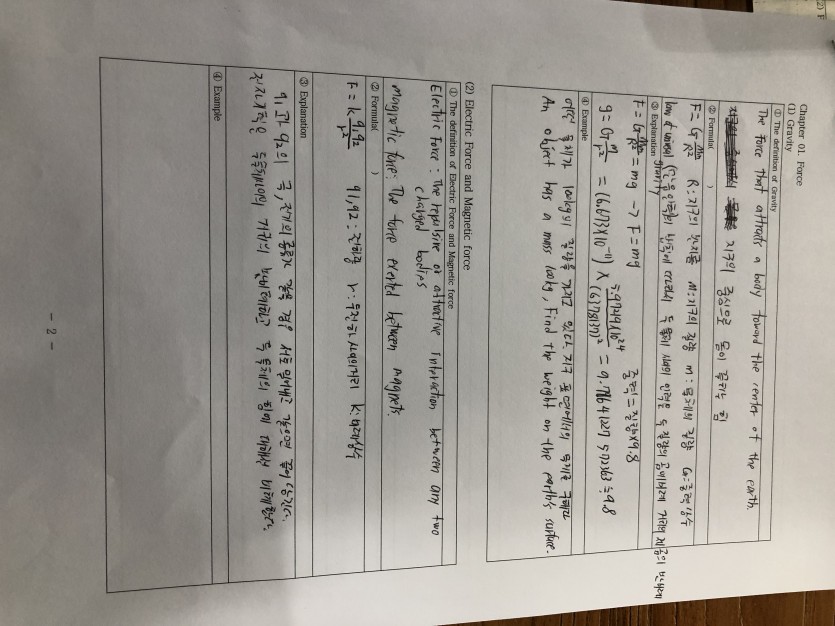 Chapter 01. Force
(1) Gravity
① The definition of Gravity
The force that attracts a body toward the center of the earth.
지구의 중심으로 몸이 끌리는 힘
② Formula( )
F = G Mm/R² R: 지구의 반지름 M: 지구의 질량 m: 물체의 질량 G: 중력상수
law of universal gravity (만유인력의 법칙에 따르면 두 물체 사이의 인력은 두 질량의 곱에 비례 거리의 제곱의 반비례
③ Explanation
F = G Mm/R² = mg → F = mg 중력 = 질량×9.8
g = G m/r² = (6.673×10⁻¹¹) × 5.9729×10²⁴/(6378137)² = 9.7164122757363 ≒ 9.8
④ Example
어떤 물체가 100kg의 질량을 가지고 있다 지구 표면에서의 무게를 구해라
An object has a mass 100kg, Find the weight on the earth's surface.
(2) Electric Force and Magnetic force
① The definition of Electric Force and Magnetic force
Electric force : The repulsive or attractive interaction between any two
charged bodies
Magnetic force: The force exerted between magnets.
② Formula( )
F = k q₁q₂/r² q1, q2 : 전하량 r : 두 전하 사이의 거리 k : 비례상수
③ Explanation
q₁과 q₂의 극, 전기의 종류가 같을 경우 서로 밀어내고 다르면 끌어당긴다.
전기력은 두 물체 사이의 거리의 반비례하고 두 물체의 힘에 대해서 비례한다.
④ Example
- 2 -